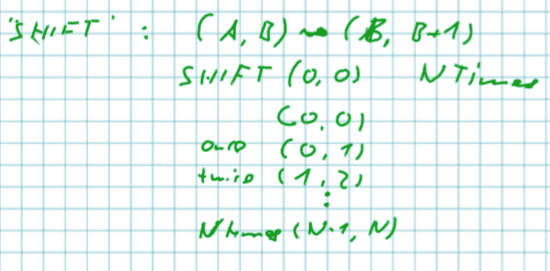 "SHIFT" : (A, B) ⇝ (B, B+1)
SHIFT (0, 0) N Times
(0, 0)
once (0, 1)
twice (1, 2)
⋮
N times (N-1, N)